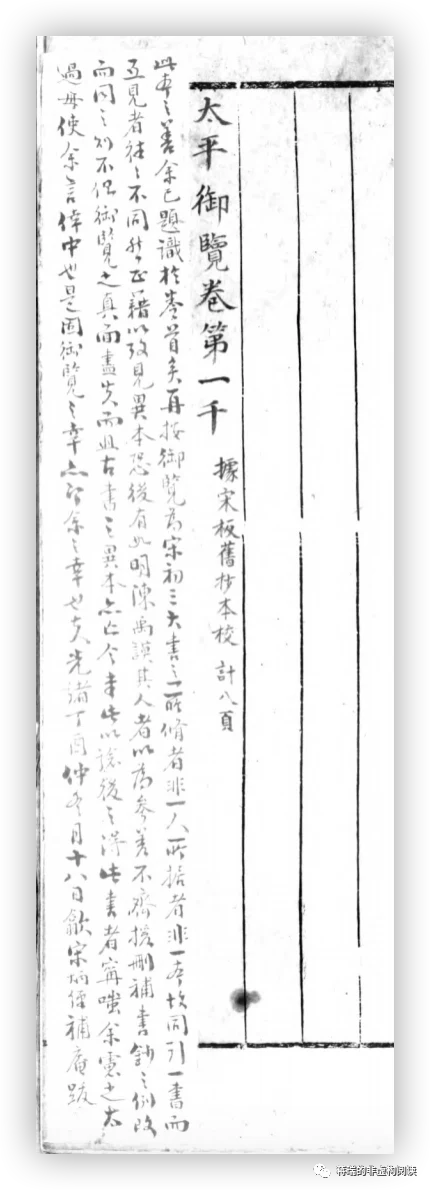 太平御覽卷第一千
據宋板舊抄本校 計八頁
此本之善余已題識於卷首矣再按御覽為宋初三大書之一所脩者非一人所据者非一本故同引一書而
互見者往〻不同然正藉以攷見異本恐後有如明陳禹謨其人者以為參差不齊援刪補書鈔之例改
而同之則不但御覽之真面盡失而且古書之異本亦亡今書此以諗後之得此書者甯嗤余慮之太
過毋使余言倖中也是固御覽之幸亦即余之幸也夫光緒丁酉仲冬月十八日歙宋炳補庵跋
的非虚构阅读